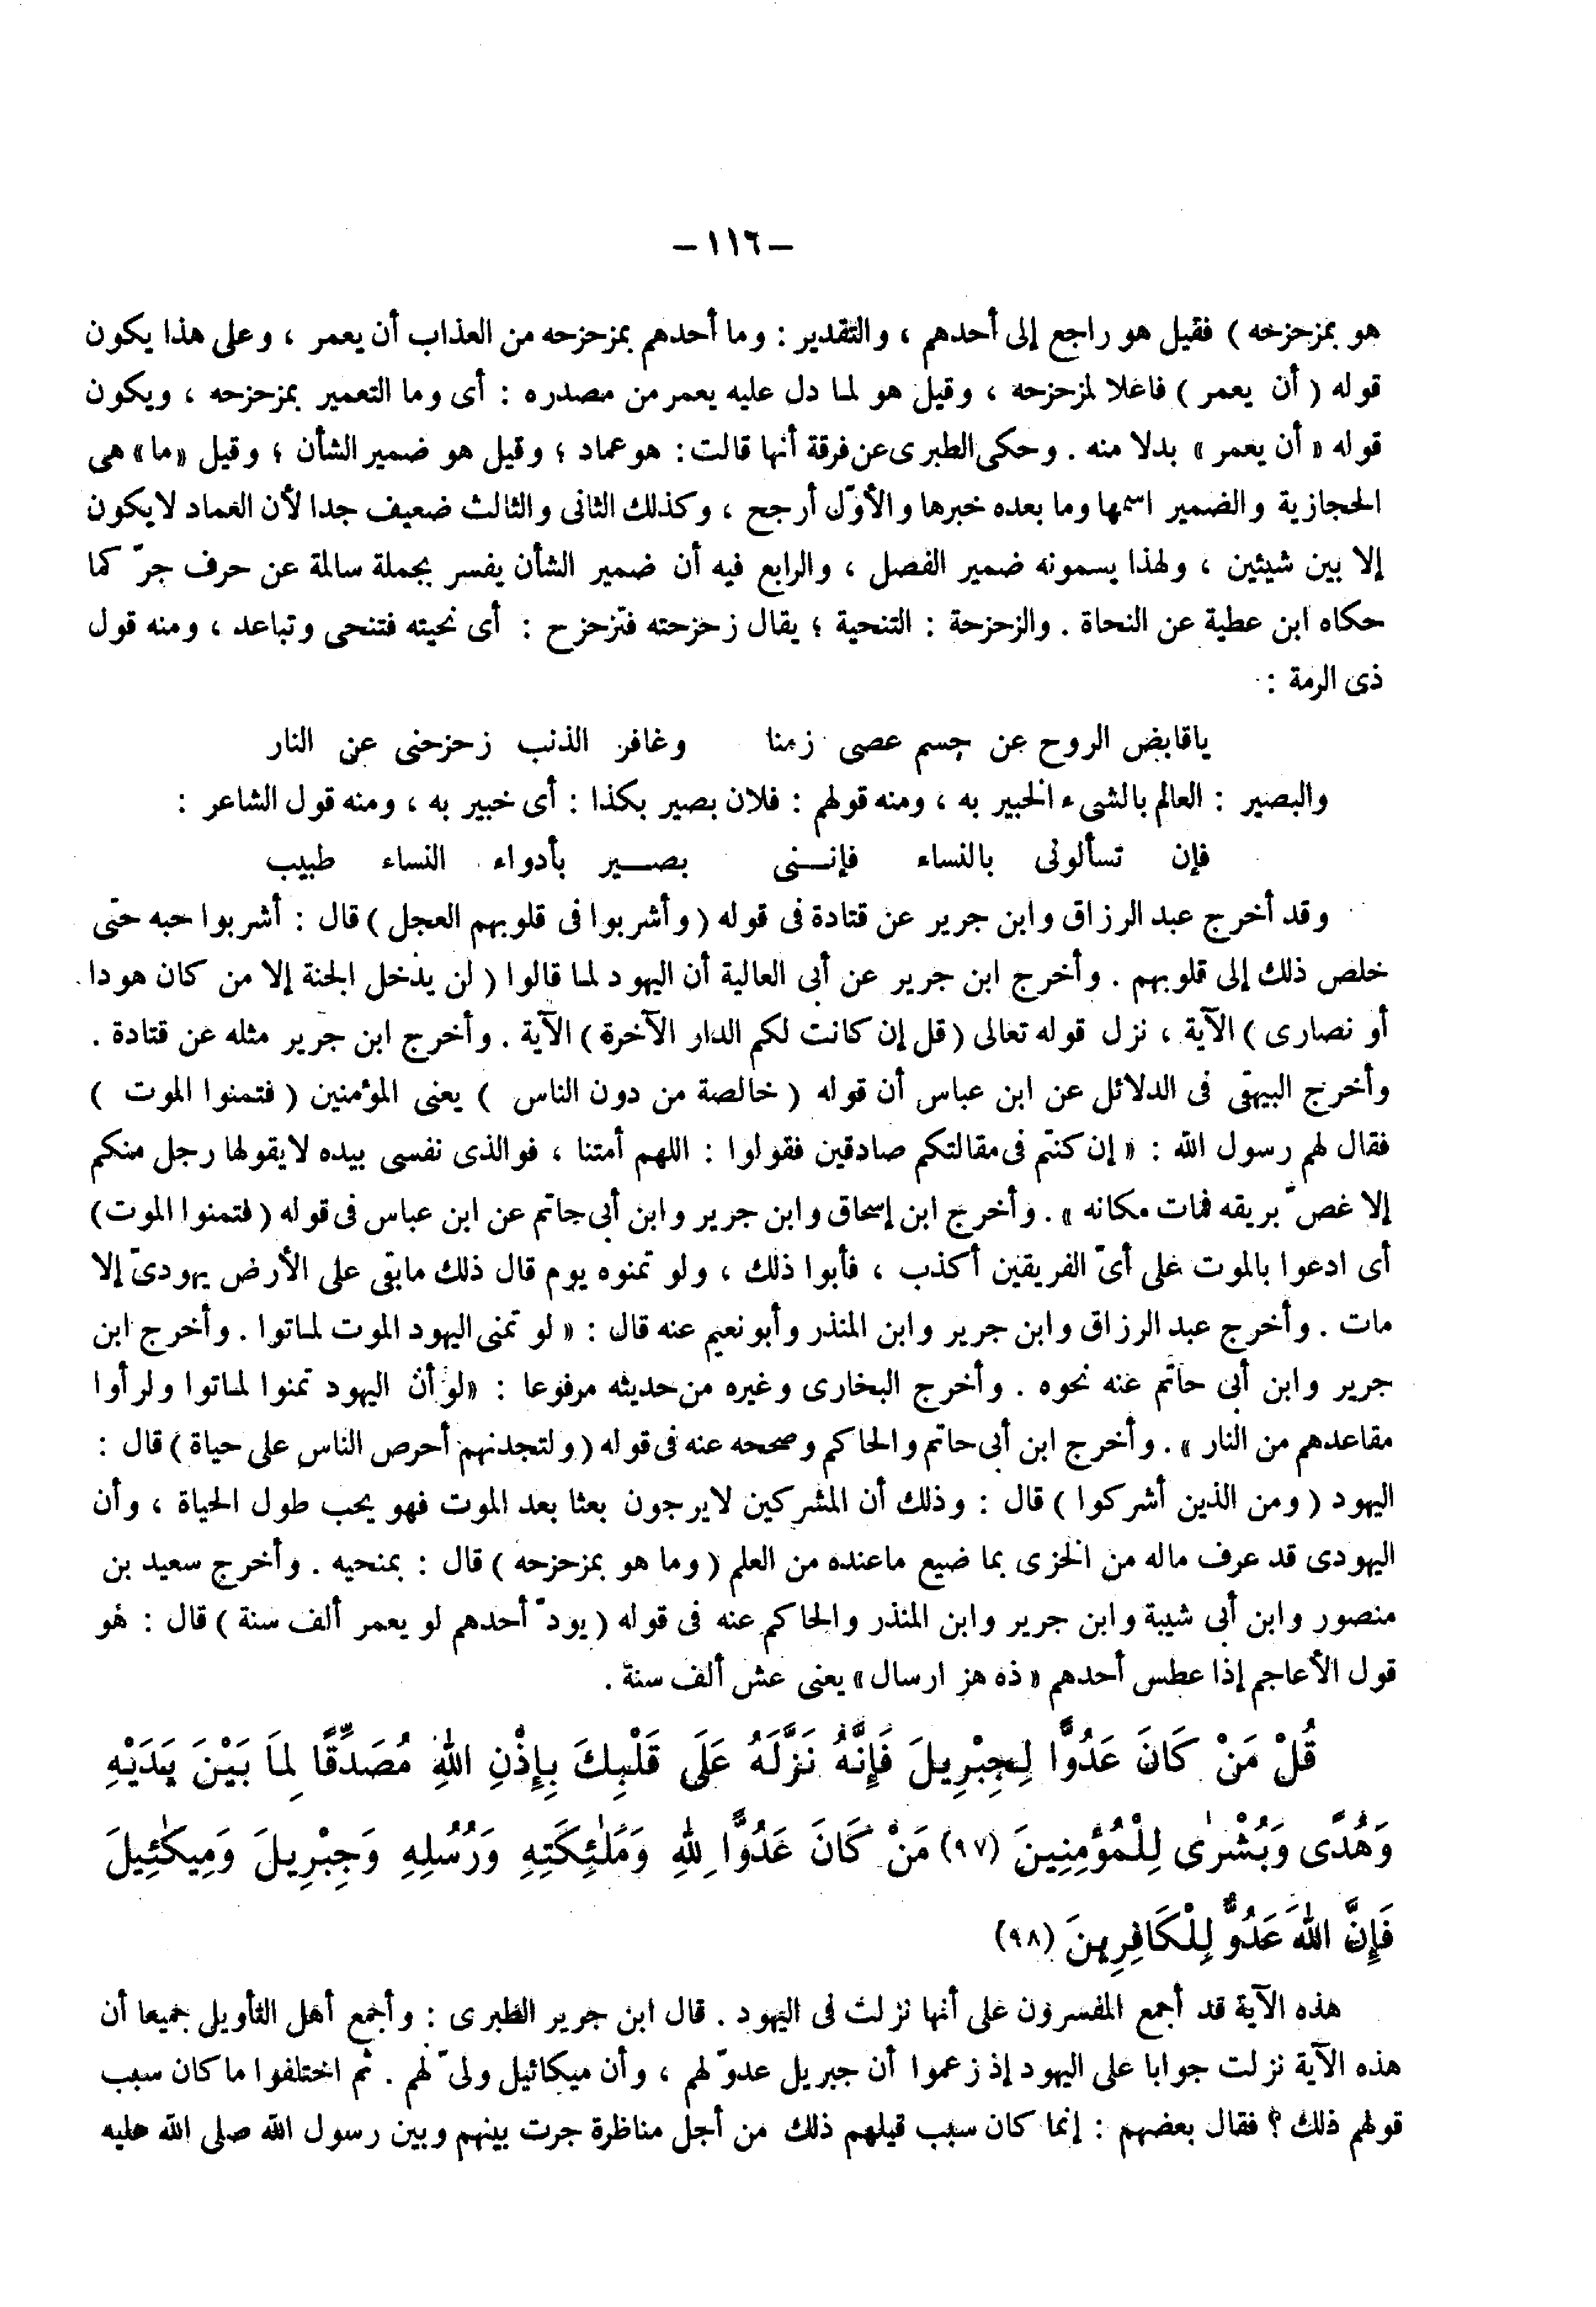 – ١١٦ –
هو بمزحزحه ) فقيل هو راجع إلى أحدهم ، والتقدير : وما أحدهم بمزحزحه من العذاب أن يعمر ، وعلى هذا يكون
قوله ( أن يعمر ) فاعلا لمزحزحه ، وقيل هو لما دل عليه يعمر من مصدره : أى وما التعمير بمزحزحه ، ويكون
قوله « أن يعمر » بدلا منه . وحكى الطبرى عن فرقة أنها قالت : هو عماد ؛ وقيل هو ضمير الشأن ؛ وقيل « ما » هى
الحجازية والضمير اسمها وما بعده خبرها والأوّل أرجح ، وكذلك الثانى والثالث ضعيف جدا لأن العماد لايكون
إلا بين شيئين ، ولهذا يسمونه ضمير الفصل ، والرابع فيه أن ضمير الشأن يفسر بجملة سالمة عن حرف جرّ كما
حكاه ابن عطية عن النحاة . والزحزحة : التنحية ؛ يقال زحزحته فتزحزح : أى نحيته فتنحى وتباعد ، ومنه قول
ذى الرمة :
ياقابض الروح عن جسم عصى زمنا وغافر الذنب زحزحنى عن النار
والبصير : العالم بالشىء الخبير به ، ومنه قولهم : فلان بصير بكذا : أى خبير به ، ومنه قول الشاعر :
فإن تسألونى بالنساء فإنــنى بصــير بأدواء النساء طبيب
وقد أخرج عبد الرزاق وابن جرير عن قتادة فى قوله ( وأشربوا فى قلوبهم العجل ) قال : أشربوا حبه حتى
خلص ذلك إلى قلوبهم . وأخرج ابن جرير عن أبى العالية أن اليهود لما قالوا ( لن يدخل الجنة إلا من كان هودا
أو نصارى ) الآية ، نزل قوله تعالى ( قل إن كانت لكم الدار الآخرة ) الآية . وأخرج ابن جرير مثله عن قتادة .
وأخرج البيهقى فى الدلائل عن ابن عباس أن قوله ( خالصة من دون الناس ) يعنى المؤمنين ( فتمنوا الموت )
فقال لهم رسول الله : « إن كنتم فى مقالتكم صادقين فقولوا : اللهم أمتنا ، فوالذى نفسى بيده لايقولها رجل منكم
إلا غصّ بريقه فمات مكانه » . وأخرج ابن إسحاق وابن جرير وابن أبى حاتم عن ابن عباس فى قوله ( فتمنوا الموت )
أى ادعوا بالموت على أىّ الفريقين أكذب ، فأبوا ذلك ، ولو تمنوه يوم قال ذلك مابقى على الأرض يهودىّ إلا
مات . وأخرج عبد الرزاق وابن جرير وابن المنذر وأبو نعيم عنه قال : « لو تمنى اليهود الموت لماتوا . وأخرج ابن
جرير وابن أبى حاتم عنه نحوه . وأخرج البخارى وغيره من حديثه مرفوعا : « لو أن اليهود تمنوا لماتوا ولرأوا
مقاعدهم من النار » . وأخرج ابن أبى حاتم والحاكم وصححه عنه فى قوله ( ولتجدنهم أحرص الناس على حياة ) قال :
اليهود ( ومن الذين أشركوا ) قال : وذلك أن المشركين لايرجون بعثا بعد الموت فهو يحب طول الحياة ، وأن
اليهودى قد عرف ماله من الخزى بما ضيع ماعنده من العلم ( وما هو بمزحزحه ) قال : بمنحيه . وأخرج سعيد بن
منصور وابن أبى شيبة وابن جرير وابن المنذر والحاكم عنه فى قوله ( يودّ أحدهم لو يعمر ألف سنة ) قال : هو
قول الأعاجم إذا عطس أحدهم « ذه هز ارسال » يعنى عش ألف سنة .
قُلْ مَنْ كَانَ عَدُوًّا لِجِبْرِيلَ فَإِنَّهُ نَزَّلَهُ عَلَى قَلْبِكَ بِإِذْنِ اللهِ مُصَدِّقًا لِمَا بَيْنَ يَدَيْهِ
وَهُدًى وَبُشْرٰى لِلْمُؤْمِنِينَ (٩٧) مَنْ كَانَ عَدُوًّا لِلهِ وَمَلٰئِكَتِهِ وَرُسُلِهِ وَجِبْرِيلَ وَمِيكٰئِيلَ
فَإِنَّ اللهَ عَدُوٌّ لِلْكَافِرِينَ (٩٨)
هذه الآية قد أجمع المفسرون على أنها نزلت فى اليهود . قال ابن جرير الطبرى : وأجمع أهل التأويل جميعا أن
هذه الآية نزلت جوابا على اليهود إذ زعموا أن جبريل عدوّ لهم ، وأن ميكائيل ولىّ لهم . ثم اختلفوا ما كان سبب
قولهم ذلك ؟ فقال بعضهم : إنما كان سبب قيلهم ذلك من أجل مناظرة جرت بينهم وبين رسول الله صلى الله عليه